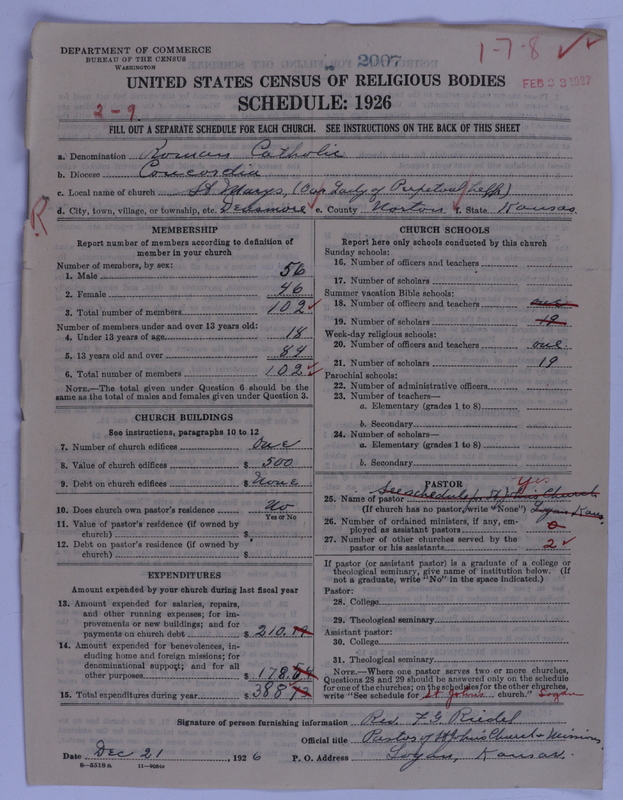 DEPARTMENT OF COMMERCE
BUREAU OF THE CENSUS
WASHINGTON
2007
1-7-8
FEB 23 1927
UNITED STATES CENSUS OF RELIGIOUS BODIES
SCHEDULE: 1926
2-9
FILL OUT A SEPARATE SCHEDULE FOR EACH CHURCH. SEE INSTRUCTIONS ON THE BACK OF THIS SHEET
a. Denomination Roman Catholic
b. Diocese Concordia
c. Local name of church St Marys, (Our Lady of Perpetual Help)
d. City, town, village, or township, etc. Densmore e. County Norton f. State Kansas
R
MEMBERSHIP
Report number of members according to definition of member in your church
Number of members, by sex:
1. Male 56
2. Female 46
3. Total number of members 102
Number of members under and over 13 years old:
4. Under 13 years of age 18
5. 13 years old and over 84
6. Total number of members 102
NOTE.—The total given under Question 6 should be the
same as the total of males and females given under Question 3.
CHURCH BUILDINGS
See instructions, paragraphs 10 to 12
7. Number of church edifices One
8. Value of church edifices $ 500
9. Debt on church edifices $ None
10. Does church own pastor's residence No
Yes or No
11. Value of pastor's residence (if owned by
church) $
12. Debt on pastor's residence (if owned by
church) $
EXPENDITURES
Amount expended by your church during last fiscal year
13. Amount expended for salaries, repairs,
and other running expenses; for im-
provements or new buildings; and for
payments on church debt $ 210.
14. Amount expended for benevolences, in-
cluding home and foreign missions; for
denominational support; and for all
other purposes $ 178.
15. Total expenditures during year $ 388
CHURCH SCHOOLS
Report here only schools conducted by this church
Sunday schools:
16. Number of officers and teachers
17. Number of scholars
Summer vacation Bible schools:
18. Number of officers and teachers one
19. Number of scholars 19
Week-day religious schools:
20. Number of officers and teachers one
21. Number of scholars 19
Parochial schools:
22. Number of administrative officers
23. Number of teachers—
a. Elementary (grades 1 to 8)
b. Secondary
24. Number of scholars—
a. Elementary (grades 1 to 8)
b. Secondary
PASTOR
Yes
25. Name of pastor See schedule for St Johns Church
(If church has no pastor, write "None") Logan Kans
26. Number of ordained ministers, if any, em-
ployed as assistant pastors 0
27. Number of other churches served by the
pastor or his assistants 2
If pastor (or assistant pastor) is a graduate of a college or
theological seminary, give name of institution below. (If
not a graduate, write "No" in the space indicated.)
Pastor:
28. College
29. Theological seminary
Assistant pastor:
30. College
31. Theological seminary
NOTE.—Where one pastor serves two or more churches,
Questions 28 and 29 should be answered only on the schedule
for one of the churches; on the schedules for the other churches,
write "See schedule for St John's church." Logan
Signature of person furnishing information Rev. F. G. Riedel
Official title Pastor of St Johns Church & Missions
Date Dec 21, 1926 P. O. Address Logan, Kansas.
8-5518a 11-9084